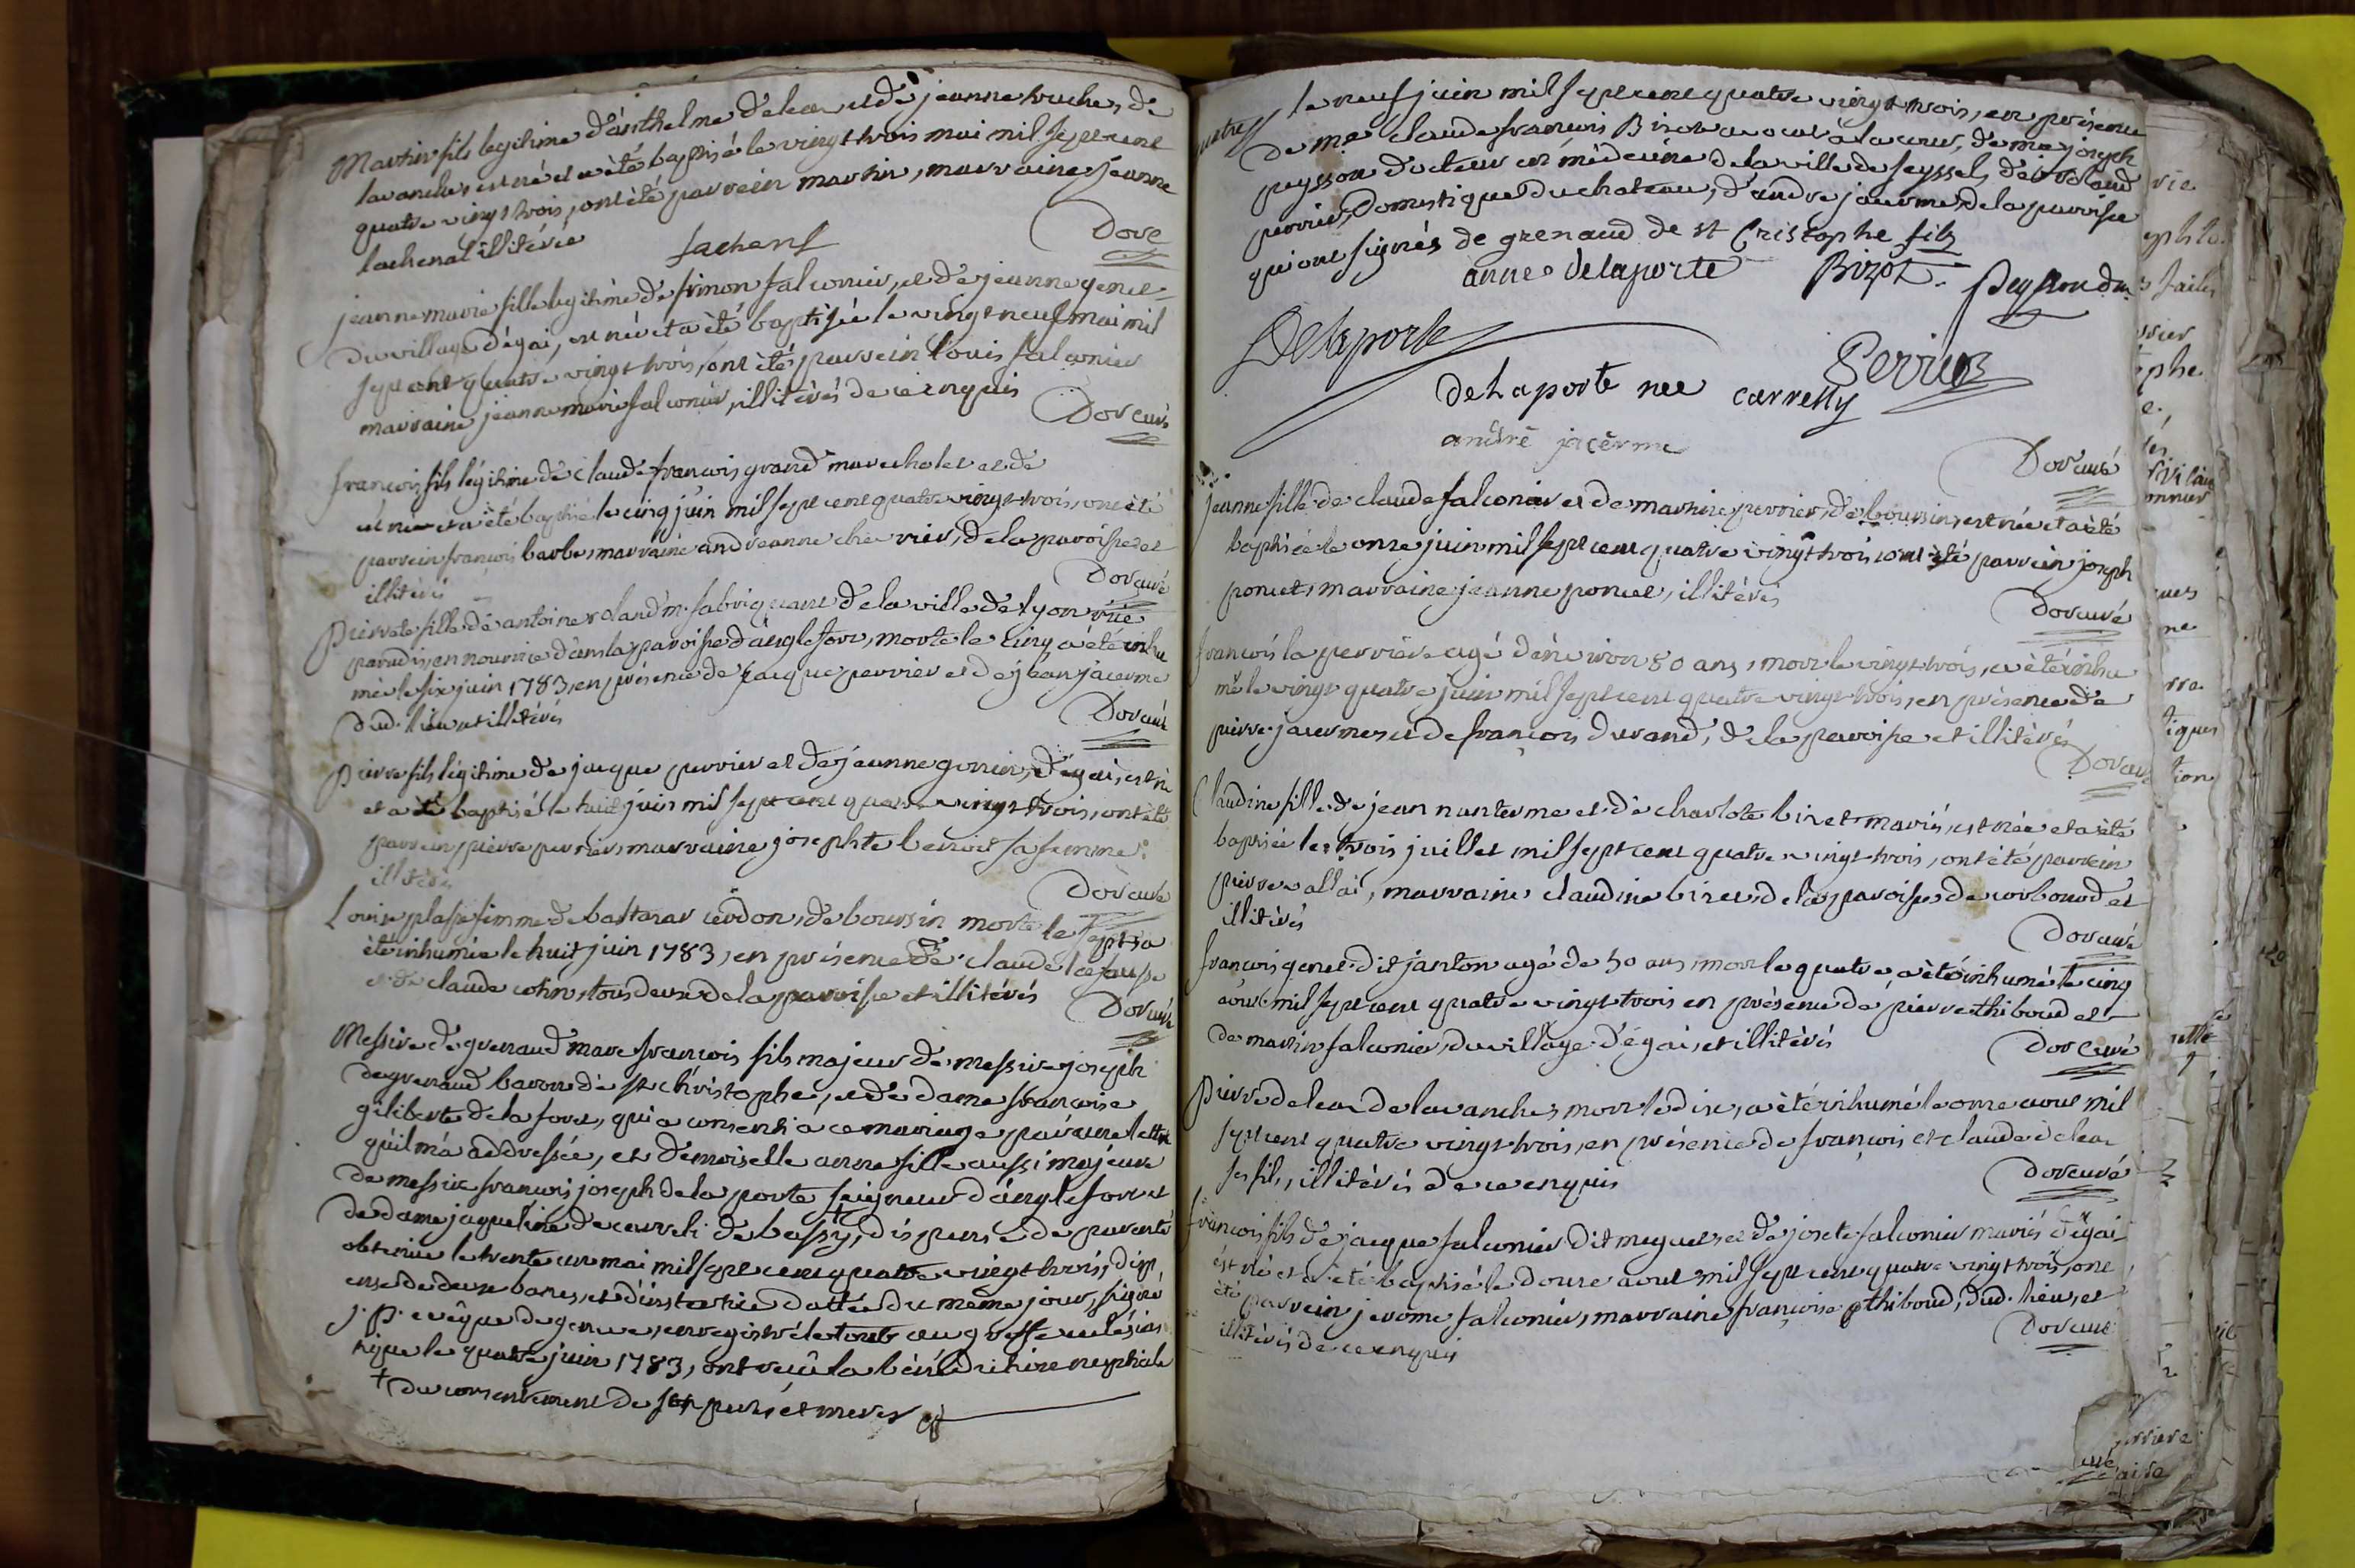 Martin fils legitime d'anthelme delea et de jeanne truche, de
lavanche, est né et a été baptisé le vingt trois mai mil sept cent
quatre vingt trois, ont été parrein martin, marraine jeanne
lachenal illitérée
Dore
jeanne marie fille legitime de simon falconier, et de jeanne genet
du village d'égai, est née et a été baptisée le vingt neuf mai mil
sept cent quatre vingt trois, ont été parrein louis falconier
marraine jeanne marie falconier, illitérés de ce enquis
Dor curé
francois fils légitime de claude francois grand marecholet et de
est né et a été baptisé le cinq juin mil sept cent quatre vingt trois, ont été
parrein francois barbe, marraine andréanne chevrier, de la paroisse et
illitérés
Dor curé
Pierrete fille de antoine roland m. fabriquant de la ville de lyon rüe
paradis, en nourrice dans la paroisse d'anglefort, morte le cinq a été inhu
mée le six juin 1783, en présence de jacque perrier et de jean jacerme
dud. lieu et illitérés
Dor curé
Pierre fils légitime de jacque perrier et de jeanne gonin, d'égai, est né
et a été baptisé le huit juin mil sept cent quatre vingt trois, ont été
parrein pierre perrier, marraine josephte benoit sa femme
illitérés
Dor curé
Louise plasse femme de baltazar cerdon, de boursin morte le sept a
été inhumée le huit juin 1783, en présence de claude
et de claude cohn, tous deux de la paroisse et illitérés
Dor curé
Messire de grenaud marc francois fils majeur de messire joseph
de grenaud baron de st christophe, et de dame francoise
giliberte de la foret, qui a consenti a ce mariage, par une lettre
qu'il m'a addressée, et demoiselle anne fille aussi majeure
de messire francois joseph de la porte seigneur d'anglefort et
de dame jaqueline de carreli de bassy, + dispense de parenté
obtenue le trente un mai mil sept cent quatre vingt trois, disp
ense de deux bancs, et d'instance dattée du meme jour, signé
j. p. evêque de geneve, enregistré le tout au greffe eclésias
tique le quatre juin 1783, ont reçû la bénédiction nuptiale
+ du consentement de ses peres et meres
le neuf juin mil sept cent quatre vingt trois, en présence
de mre claude francois Bizot avocat à la cour, de mre joseph
peysson docteur en médecine de la ville de seyssel, de
perrier, domestique du chateau, d'andre jacerme, de la paroisse
qui ont signés de grenaud de st Cristophe fils
anne delaporte Bizot. Peysson dm.
Delaporte
Perrier
deLaporte nee carrelly
andré jacérme
Dor curé
jeanne fille de claude falconier et de martine perrier, de boursin, est née et a été
baptisée le onze juin mil sept cent quatre vingt trois ont été parrein joseph
poncet, marraine jeanne poncet, illitérés
Dor curé
francois la perriere agé d'environ 80 ans, mort le vingt trois, a été inhu
mé le vingt quatre juin mil sept cent quatre vingt trois, en présence de
pierre jacerme, et de françois durand, de la paroisse et illitérés
Dor curé
Claudine fille de jean nanterme et de charlote biret mariés, est née et a été
baptisée le trois juillet mil sept cent quatre vingt trois, ont été parrein
pierre allai, marraine claudine biret, de la paroisse de corbonod et
illitérés
Dor curé
francois genet dit janton agé de 50 ans, mort le quatre, a été inhumé le cinq
août mil sept cent quatre vingt trois en présence de pierre thiboud et
de martin falconier, du village d'égai, et illitérés
Dor curé
Pierre delea de lavanche, mort le dix, a été inhumé le onze aout mil
sept cent quatre vingt trois, en présence de françois et claude delea
ses fils, illitérés de ce enquis
Dor curé
francois fils de jacque falconier dit meguet, et de josete falconier mariés d'égai
est né et a été baptisé le douze aout mil sept cent quatre vingt trois, ont
été parrein jerome falconier, marraine françoise thiboud, dud. lieu, et
illitérés de ce enquis
Dor curé